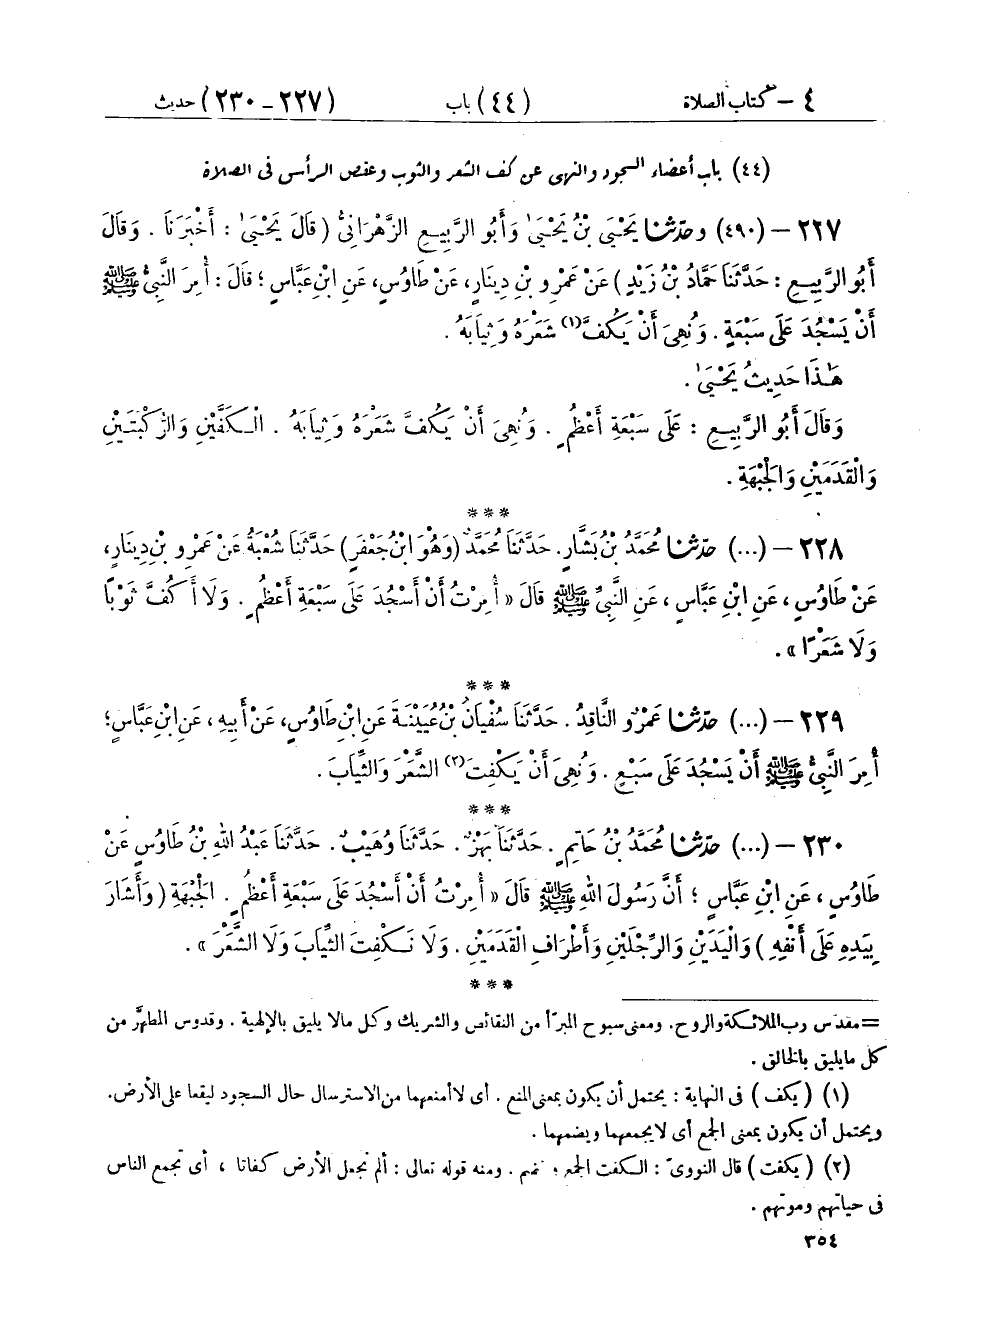 ٤ – كتاب الصلاة (٤٤) باب (٢٢٧ – ٢٣٠) حديث
(٤٤) باب أعضاء السجود والنهى عن كف الشعر والثوب وعقص الرأس فى الصلاة
٢٢٧ – (٤٩٠) وحَدَّثَنَا يَحْيَىٰ بْنُ يَحْيَىٰ وَأَبُو الرَّبِيعِ الزَّهْرَانِىُّ (قَالَ يَحْيَىٰ : أَخْبَرَنَا . وَقَالَ
أَبُو الرَّبِيعِ : حَدَّثَنَا حَمَّادُ بْنُ زَيْدٍ) عَنْ عَمْرِو بْنِ دِينَارٍ، عَنْ طَاوُسٍ، عَنِ ابْنِ عَبَّاسٍ ؛ قَالَ : أُمِرَ النَّبِىُّ ﷺ
أَنْ يَسْجُدَ عَلَى سَبْعَةٍ . وَنُهِىَ أَنْ يَكُفَّ(١) شَعْرَهُ وَثِيَابَهُ .
هَٰذَا حَدِيثُ يَحْيَىٰ .
وَقَالَ أَبُو الرَّبِيعِ : عَلَى سَبْعَةِ أَعْظُمٍ . وَنُهِىَ أَنْ يَكُفَّ شَعْرَهُ وَثِيَابَهُ . الْكَفَّيْنِ وَالرُّكْبَتَيْنِ
وَالْقَدَمَيْنِ وَالْجَبْهَةِ .
***
٢٢٨ – (...) حَدَّثَنَا مُحَمَّدُ بْنُ بَشَّارٍ. حَدَّثَنَا مُحَمَّدٌ (وَهُوَ ابْنُ جَعْفَرٍ) حَدَّثَنَا شُعْبَةُ عَنْ عَمْرِو بْنِ دِينَارٍ،
عَنْ طَاوُسٍ ، عَنِ ابْنِ عَبَّاسٍ ، عَنِ النَّبِىِّ ﷺ قَالَ « أُمِرْتُ أَنْ أَسْجُدَ عَلَى سَبْعَةِ أَعْظُمٍ . وَلَا أَكُفَّ ثَوْبًا
وَلَا شَعْرًا » .
***
٢٢٩ – (...) حَدَّثَنَا عَمْرٌو النَّاقِدُ . حَدَّثَنَا سُفْيَانُ بْنُ عُيَيْنَةَ عَنِ ابْنِ طَاوُسٍ، عَنْ أَبِيهِ ، عَنِ ابْنِ عَبَّاسٍ؛
أُمِرَ النَّبِىُّ ﷺ أَنْ يَسْجُدَ عَلَى سَبْعٍ . وَنُهِىَ أَنْ يَكْفِتَ(٢) الشَّعْرَ وَالثِّيَابَ .
***
٢٣٠ – (...) حَدَّثَنَا مُحَمَّدُ بْنُ حَاتِمٍ . حَدَّثَنَا بَهْزٌ . حَدَّثَنَا وُهَيْبٌ . حَدَّثَنَا عَبْدُ اللهِ بْنُ طَاوُسٍ عَنْ
طَاوُسٍ ، عَنِ ابْنِ عَبَّاسٍ ؛ أَنَّ رَسُولَ اللهِ ﷺ قَالَ « أُمِرْتُ أَنْ أَسْجُدَ عَلَى سَبْعَةِ أَعْظُمٍ . الْجَبْهَةِ (وَأَشَارَ
بِيَدِهِ عَلَى أَنْفِهِ) وَالْيَدَيْنِ وَالرِّجْلَيْنِ وَأَطْرَافِ الْقَدَمَيْنِ . وَلَا نَكْفِتَ الثِّيَابَ وَلَا الشَّعْرَ » .
***
= مقدّس رب الملائكة والروح. ومعنى سبوح المبرّأ من النقائص والشريك وكل مالا يليق بالإلهية . وقدوس المطهَّر من
كل مايليق بالخالق .
(١) (يكف) فى النهاية : يحتمل أن يكون بمعنى المنع . أى لا أمنعهما من الاسترسال حال السجود ليقعا على الأرض.
ويحتمل أن يكون بمعنى الجمع أى لايجمعهما ويضمهما .
(٢) (يكفت) قال النووىّ : الكفت الجمع والضم . ومنه قوله تعالى : ألم نجعل الأرض كفاتا ، أى تجمع الناس
فى حياتهم وموتهم .
٣٥٤